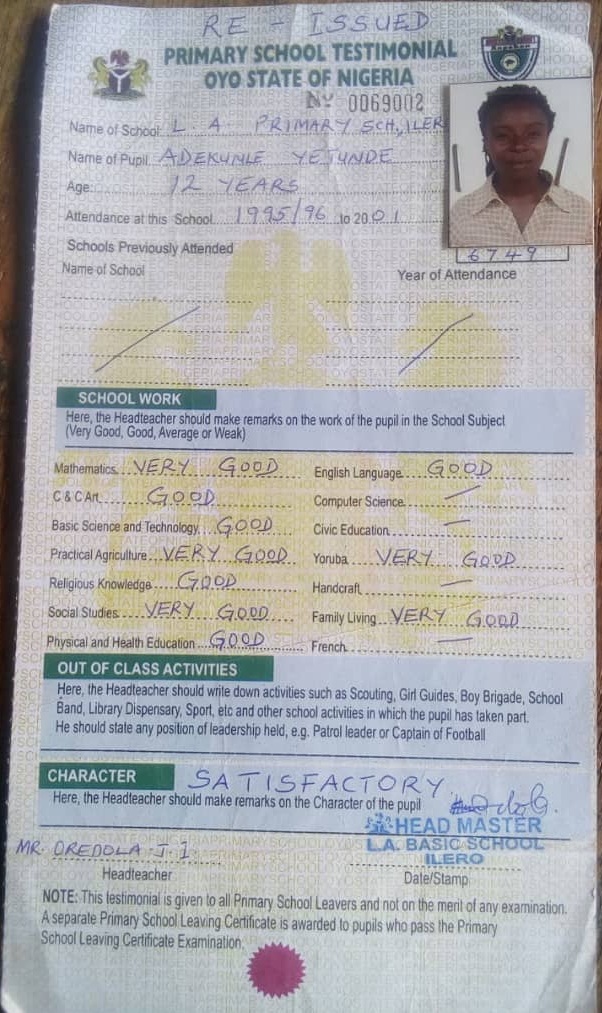 RE - ISSUED
PRIMARY SCHOOL TESTIMONIAL
OYO STATE OF NIGERIA
Nº 0069002
Name of School: L. A. PRIMARY SCH., ILER
Name of Pupil ADEKUNLE YETUNDE
Age: 12 YEARS
Attendance at this School 1995/96 to 2001
6749
Schools Previously Attended
Name of School Year of Attendance
SCHOOL WORK
Here, the Headteacher should make remarks on the work of the pupil in the School Subject
(Very Good, Good, Average or Weak)
Mathematics VERY GOOD English Language GOOD
C & C Art GOOD Computer Science
Basic Science and Technology GOOD Civic Education
Practical Agriculture VERY GOOD Yoruba VERY GOOD
Religious Knowledge GOOD Handcraft
Social Studies VERY GOOD Family Living VERY GOOD
Physical and Health Education GOOD French
OUT OF CLASS ACTIVITIES
Here, the Headteacher should write down activities such as Scouting, Girl Guides, Boy Brigade, School
Band, Library Dispensary, Sport, etc and other school activities in which the pupil has taken part.
He should state any position of leadership held, e.g. Patrol leader or Captain of Football
CHARACTER SATISFACTORY
Here, the Headteacher should make remarks on the Character of the pupil
HEAD MASTER
L.A. BASIC SCHOOL
ILERO
MR. OREDOLA J. I.
Headteacher Date/Stamp
NOTE: This testimonial is given to all Primary School Leavers and not on the merit of any examination.
A separate Primary School Leaving Certificate is awarded to pupils who pass the Primary
School Leaving Certificate Examination.